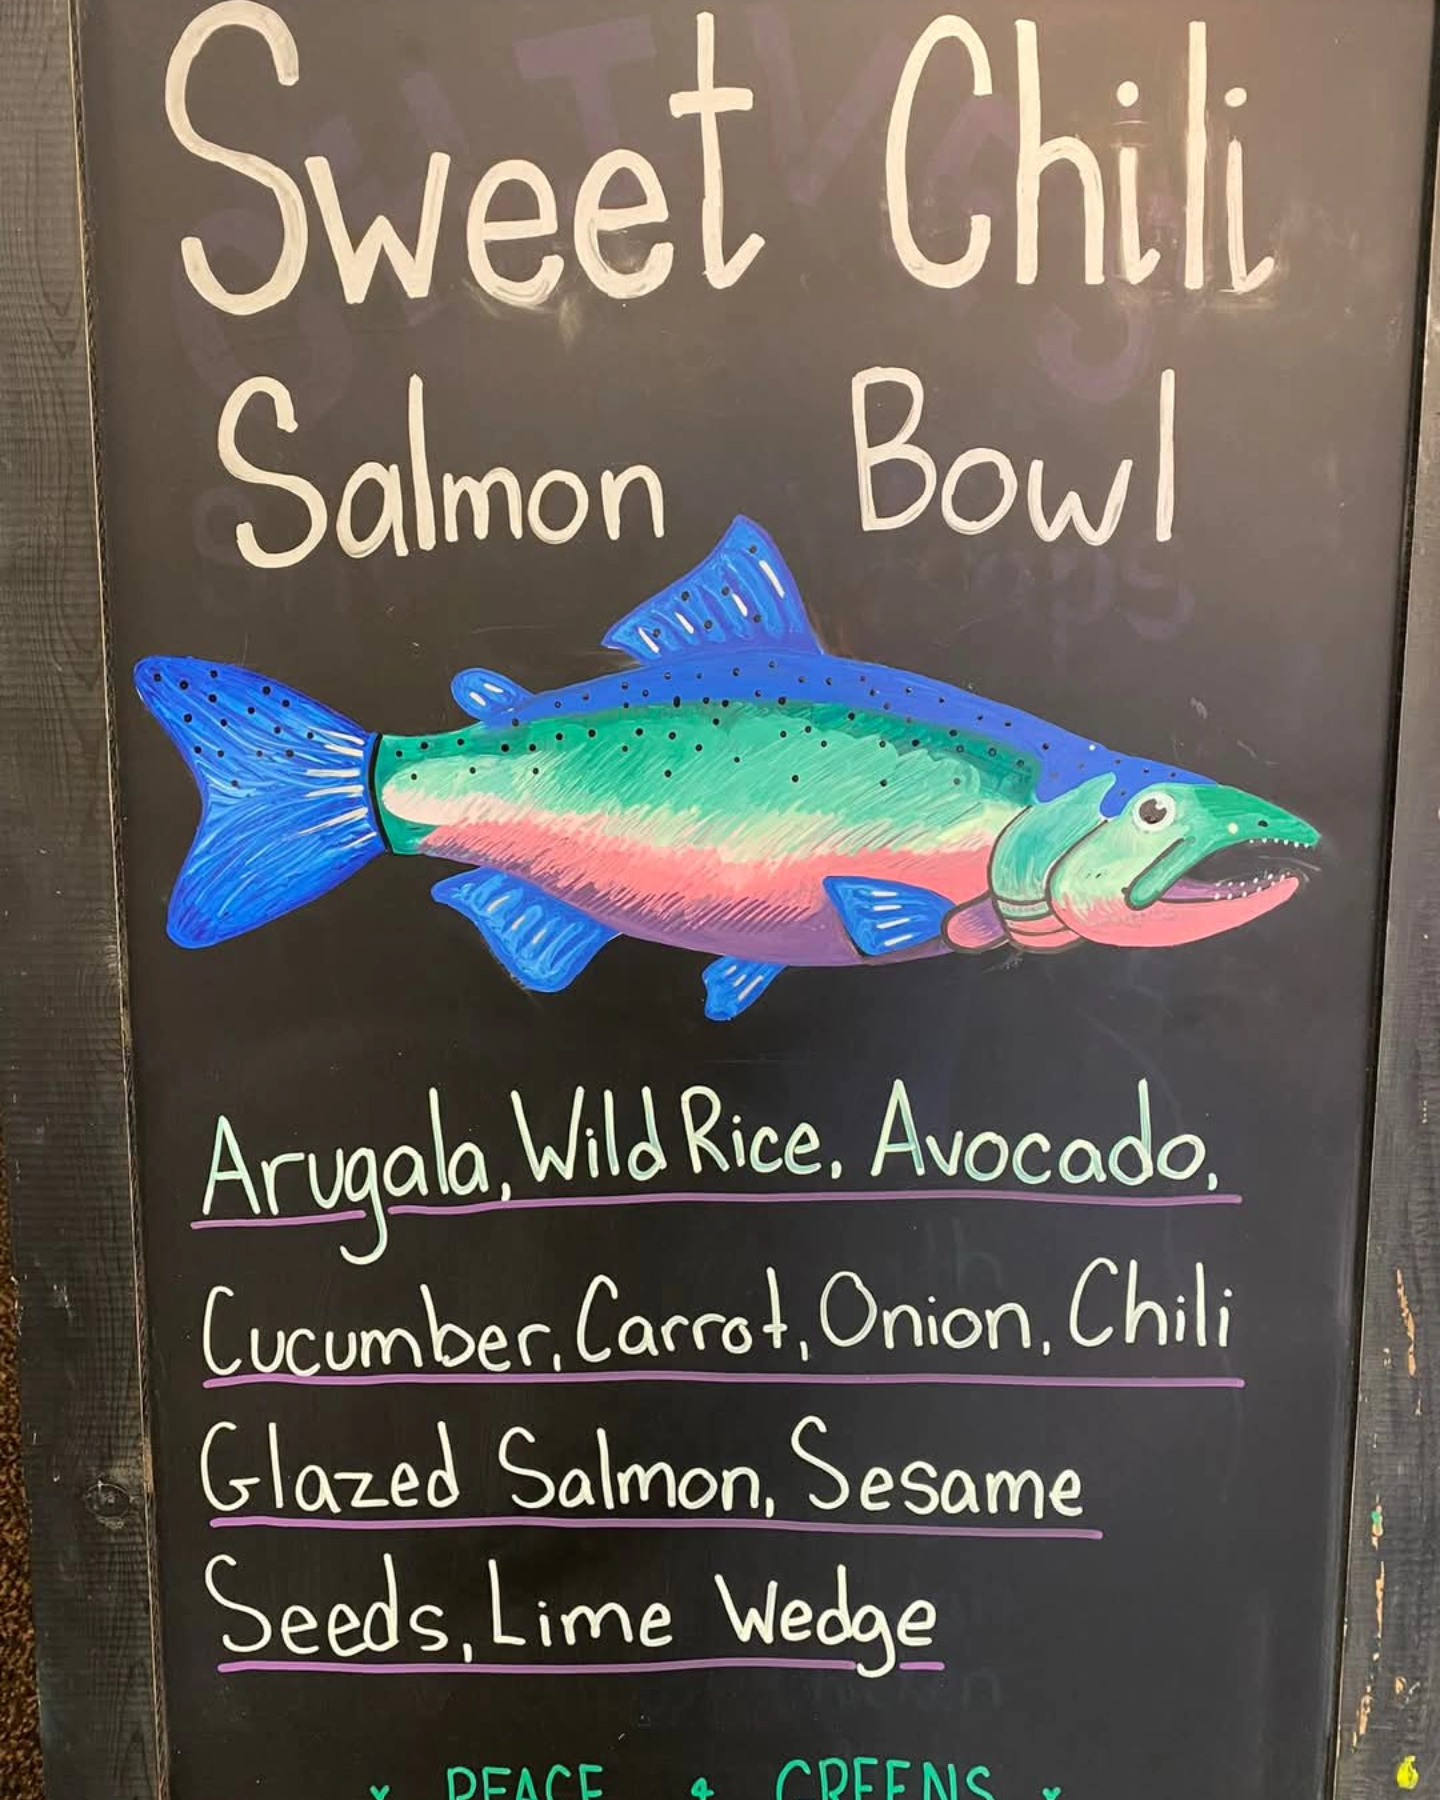 Sweet Chili
Salmon Bowl
Arugala, Wild Rice, Avocado,
Cucumber, Carrot, Onion, Chili
Glazed Salmon, Sesame
Seeds, Lime Wedge
PEACE & GREENS